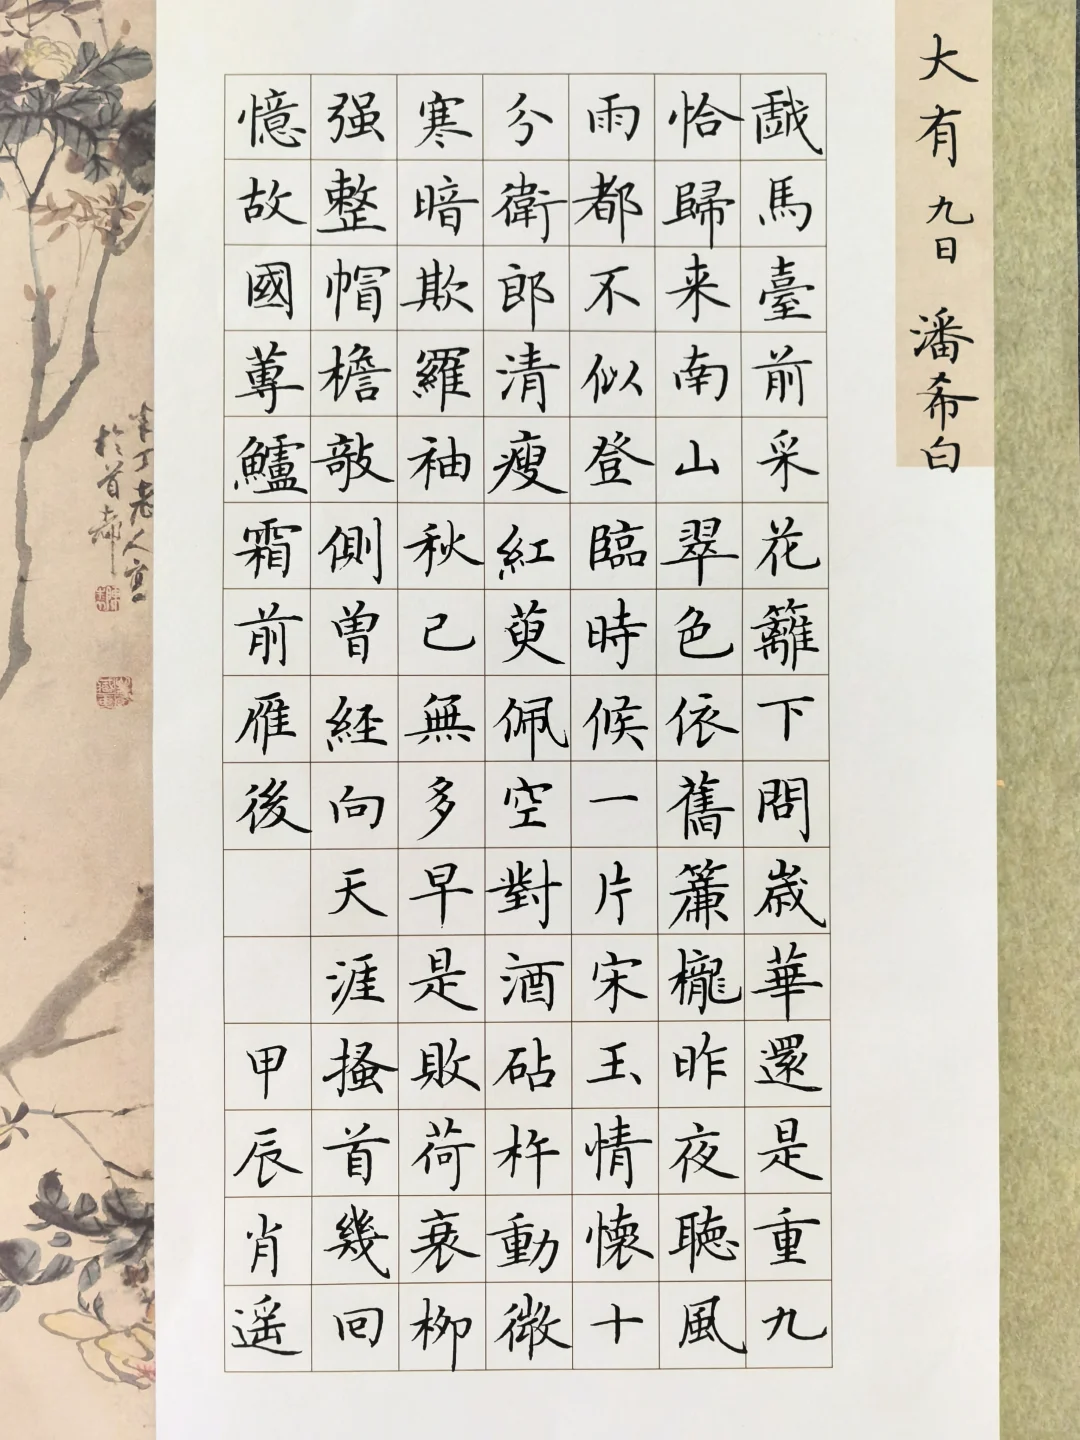 大有 九日 潘希白
戲馬臺前采花籬下問歲華還是重九
恰歸来南山翠色依舊簾櫳昨夜聽風
雨都不似登臨時候一片宋玉情懷十
分衛郎清瘦紅萸佩空對酒砧杵動微
寒暗欺羅袖秋已無多早是敗荷衰柳
强整帽檐敧側曾経向天涯搔首幾回
憶故國蓴鱸霜前雁後
甲辰肖遥
辛丁老人寫
於首都